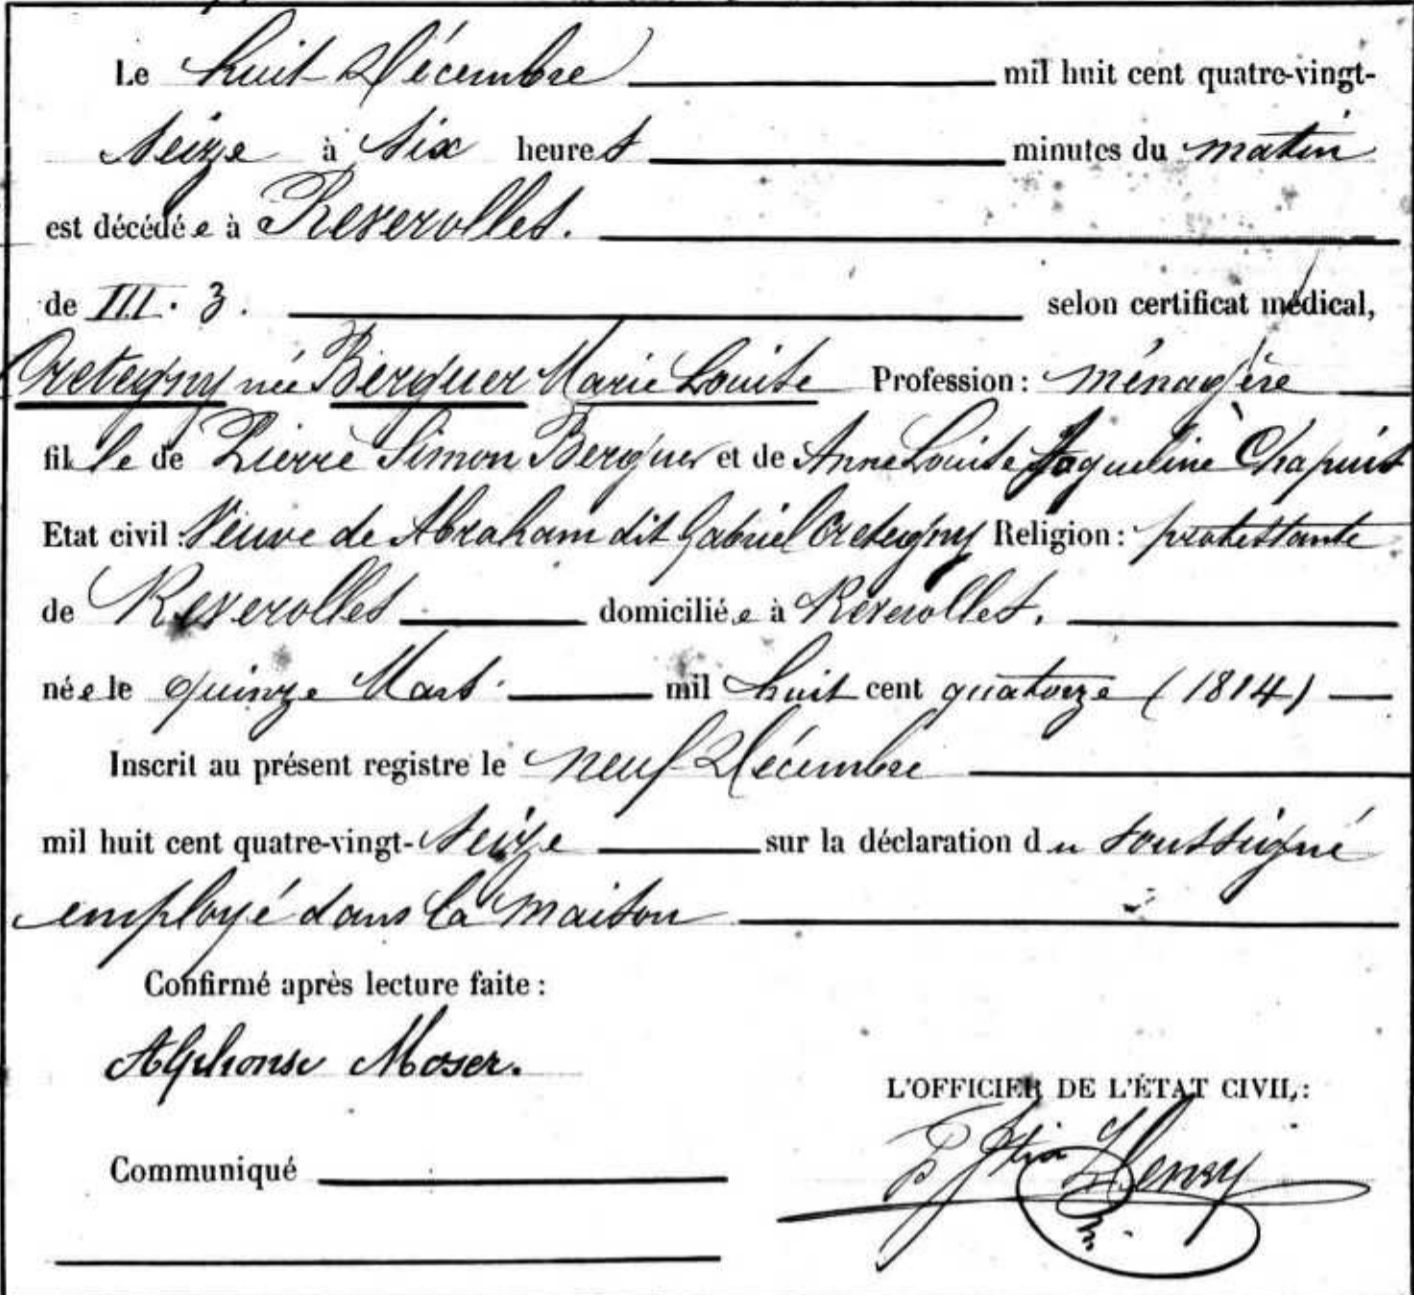 Le huit Décembre mil huit cent quatre-vingt-
seize à six heures minutes du matin
est décédée à Reverolles.
de III. 3. selon certificat médical,
Cretegny née Berguer Marie Louise Profession: ménagère
fille de Pierre Simon Berguer et de Anne Louise Jaqueline Chapuis
Etat civil: Veuve de Abraham dit Gabriel Cretegny Religion: protestante
de Reverolles domiciliée à Reverolles.
née le quinze Mars mil huit cent quatorze (1814)
Inscrit au présent registre le neuf Décembre
mil huit cent quatre-vingt-seize sur la déclaration du soussigné
employé dans la maison
Confirmé après lecture faite:
Alphonse Moser.
L'OFFICIER DE L'ÉTAT CIVIL:
Henry
Communiqué